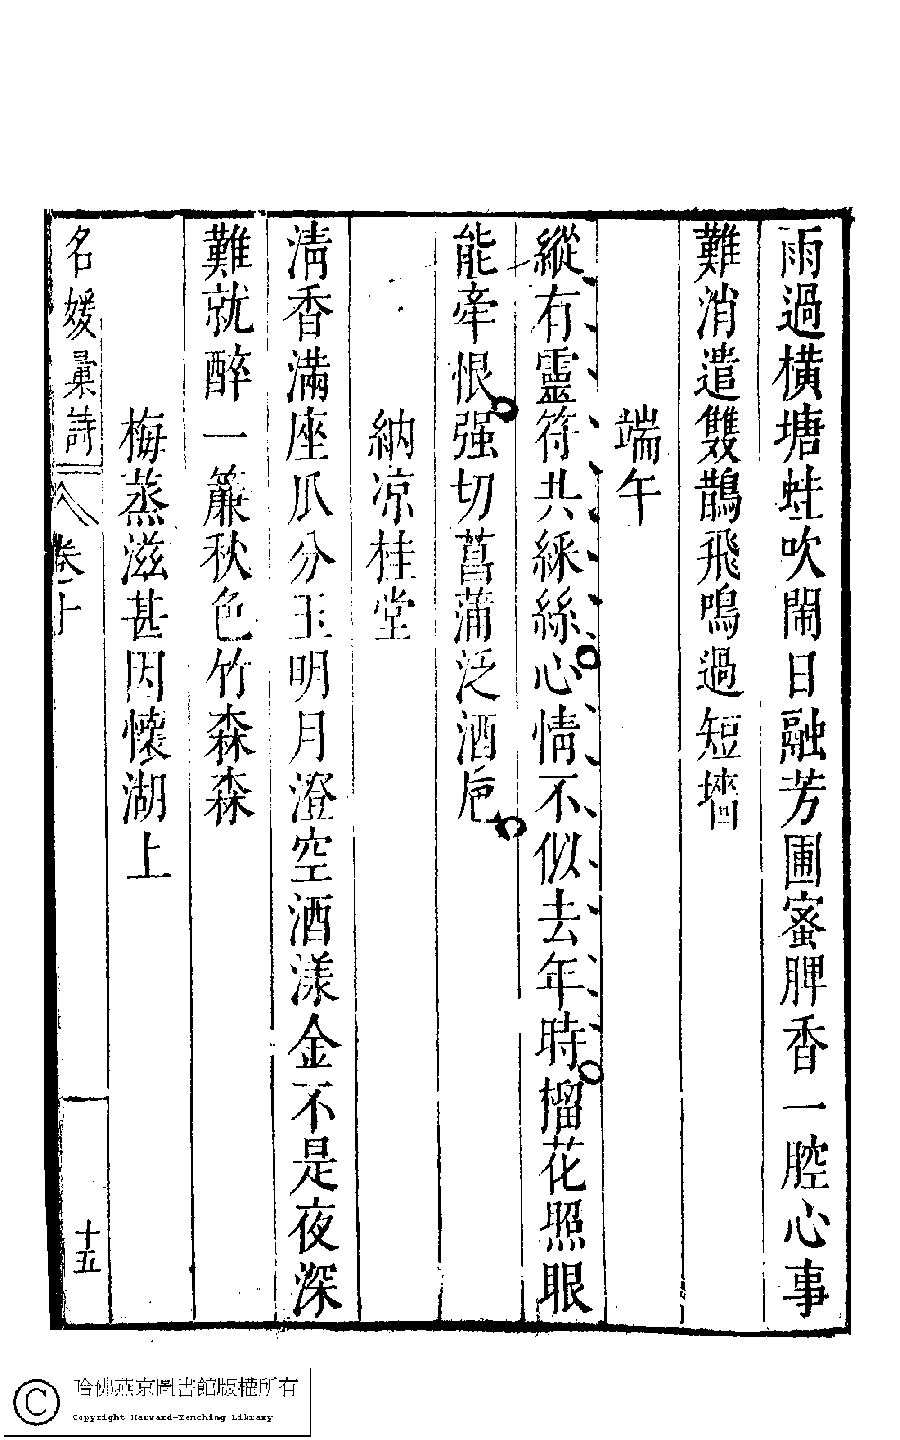 雨過橫塘蛙吹鬧日融芳圃蜜脾香一腔心事
難消遣雙鵲飛鳴過短墻
端午
縱有靈符共綵絲心情不似去年時榴花照眼
能牽恨强切菖蒲泛酒巵
納凉桂堂
淸香滿座瓜分玉明月澄空酒漾金不是夜深
難就醉一簾秋色竹森森
梅蒸滋甚因懷湖上
名媛彙詩
卷十
十五
哈佛燕京圖書館版權所有
Copyright Harvard-Yenching Library